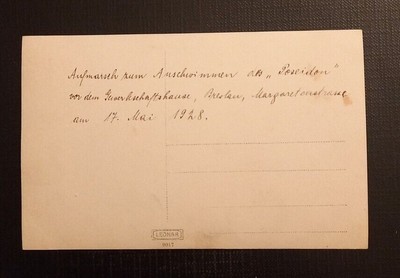 Aufmarsch zum Anschwimmen des „Poseidon"
vor dem Gewerkschaftshause, Breslau, Margaretenstrasse
am 17. Mai 1928.
LEONAR